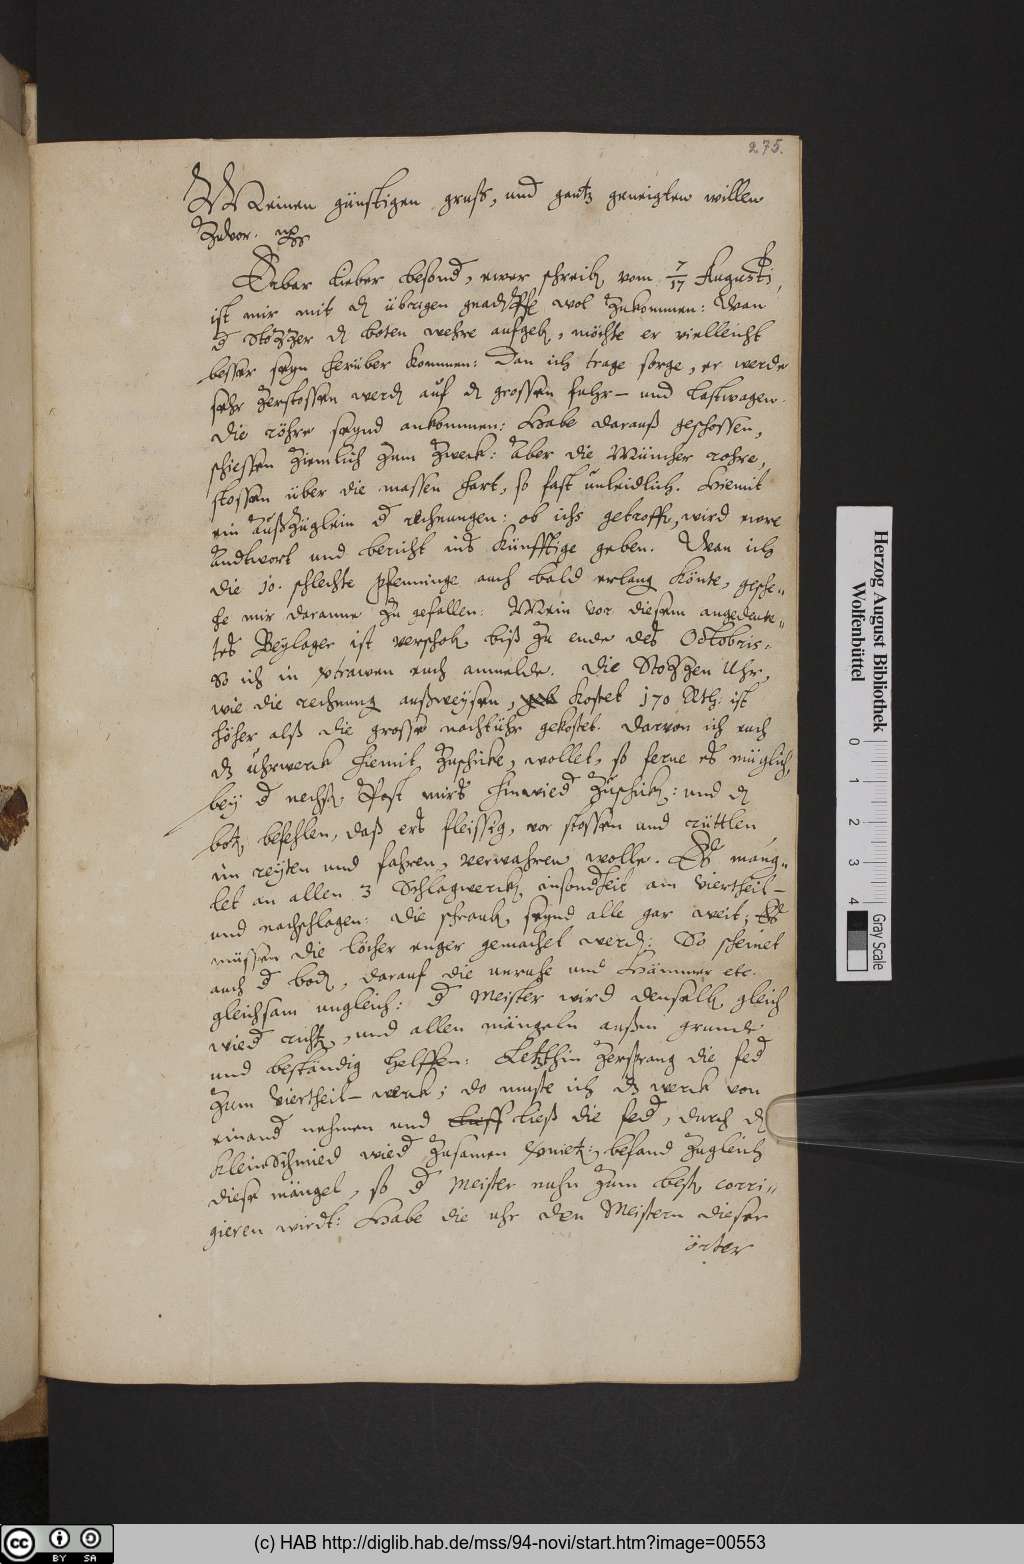 275.
Meinen günstigen gruß, und gantz geneigten willen
Zuvor.
Erbar lieber besond, ewer schreib vom 7/17 Augusti,
ist mir mit d übrigen wol Zukommen: Wan
d StoZZer d boten wehre aufgeb, möchte er vielleicht
besser seyn herüber kommen: Dan ich trage sorge, er werde
sehr Zerstossen werd auf d grossen fuhr- und lastwagen.
Die röhre seynd ankommen: Habe darauß geschossen,
schiessen Ziemlich Zum Zweck: Aber die Müncher rohre,
stossen über die massen hart, so fast unleidlich. Hiemit
ein außZüglein d rechnungen: ob ichs getroffe, wird ewre
Andtwort und bericht ins künfftige geben. Wan ich
die 10. schlechte pfenninge auch bald erlang könte, gesche-
he mir daranne Zu gefallen: Mein vor diesem angedeute-
tes Beylager ist verschob biß Zu ende des Octobris.
So ich in vtrawen euch anmelde. Die StoZZen Uhr,
wie die rechnung außweysen, kostet 170 Rth: ist
höher alß die grosse nachtuhr gekostet. Darvon ich euch
dz uhrwerck hiemit Zuschicke, wollet, so ferne es müglich,
bey d nechst Post mirs hinwied Zuschick: und d
bot befehlen, daß ers fleissig, vor stossen und rüttlen
im reyten und fahren, verwahren wolle. Es mang-
let an allen 3 Schlagwerck insondheit am viertheil-
und nachschlagen: die schraub seynd alle gar weit; Es
müssen die löcher enger gemachet werd: So scheinet
auch d bod, darauf die unruhe und Hämmer etc.
gleichsam ungleich: d Meister wird denselb gleich
wied richt, und allen mängeln außen grunde
und beständig helffen: Letzthin Zersprang die fed
Zum viertheil- werck; do muste ich dz werck von
einand nehmen und ließ die fed, durch d
kleinSchmied wied Zusamen niet: befand Zugleich
diese mängel, so d Meister nuhn Zum best corri-
gieren wirdt: Habe die uhr den Meistern dieser
örter
Herzog August Bibliothek
Wolfenbüttel
0 1 2 3 4
Gray Scale
cc BY SA
(c) HAB http://diglib.hab.de/mss/94-novi/start.htm?image=00553